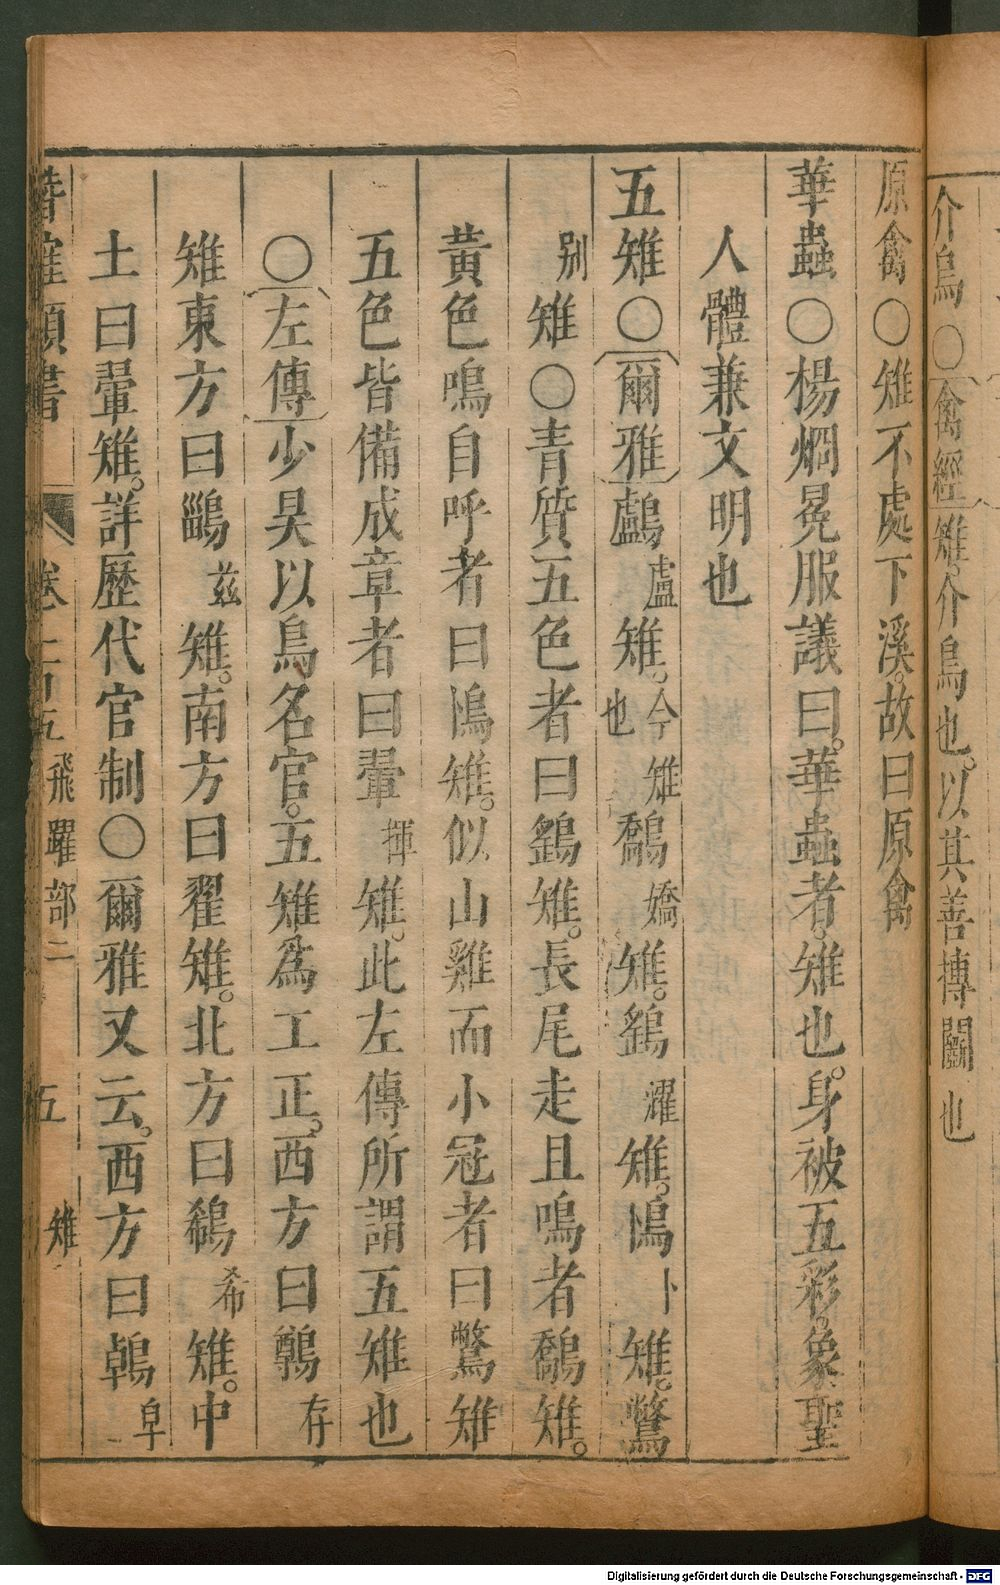 介鳥○禽經雉介鳥也。以其善摶鬭也
原禽○雉不處下溪。故曰原禽
華蟲○楊烱冕服議曰。華蟲者。雉也。身被五彩。象聖
人體兼文明也
五雉○爾雅鸕盧雉。今雉也鷮嬌雉。鸐濯雉。鳪卜雉。鷩
别雉○青質五色者曰鸐雉。長尾走且鳴者鷮雉。
黃色鳴自呼者曰鳪雉。似山雞而小冠者曰鷩雉
五色皆備成章者曰翬揮雉。此左傳所謂五雉也
○左傳少昊以鳥名官。五雉爲工正。西方曰鷷存
雉東方曰鶅茲雉。南方曰翟雉。北方曰鵗希雉。中
土曰翬雉。詳歷代官制○爾雅又云。西方曰鶾皐
潛確類書 卷一百五 飛躍部二 五 雉
Digitalisierung gefördert durch die Deutsche Forschungsgemeinschaft - DFG